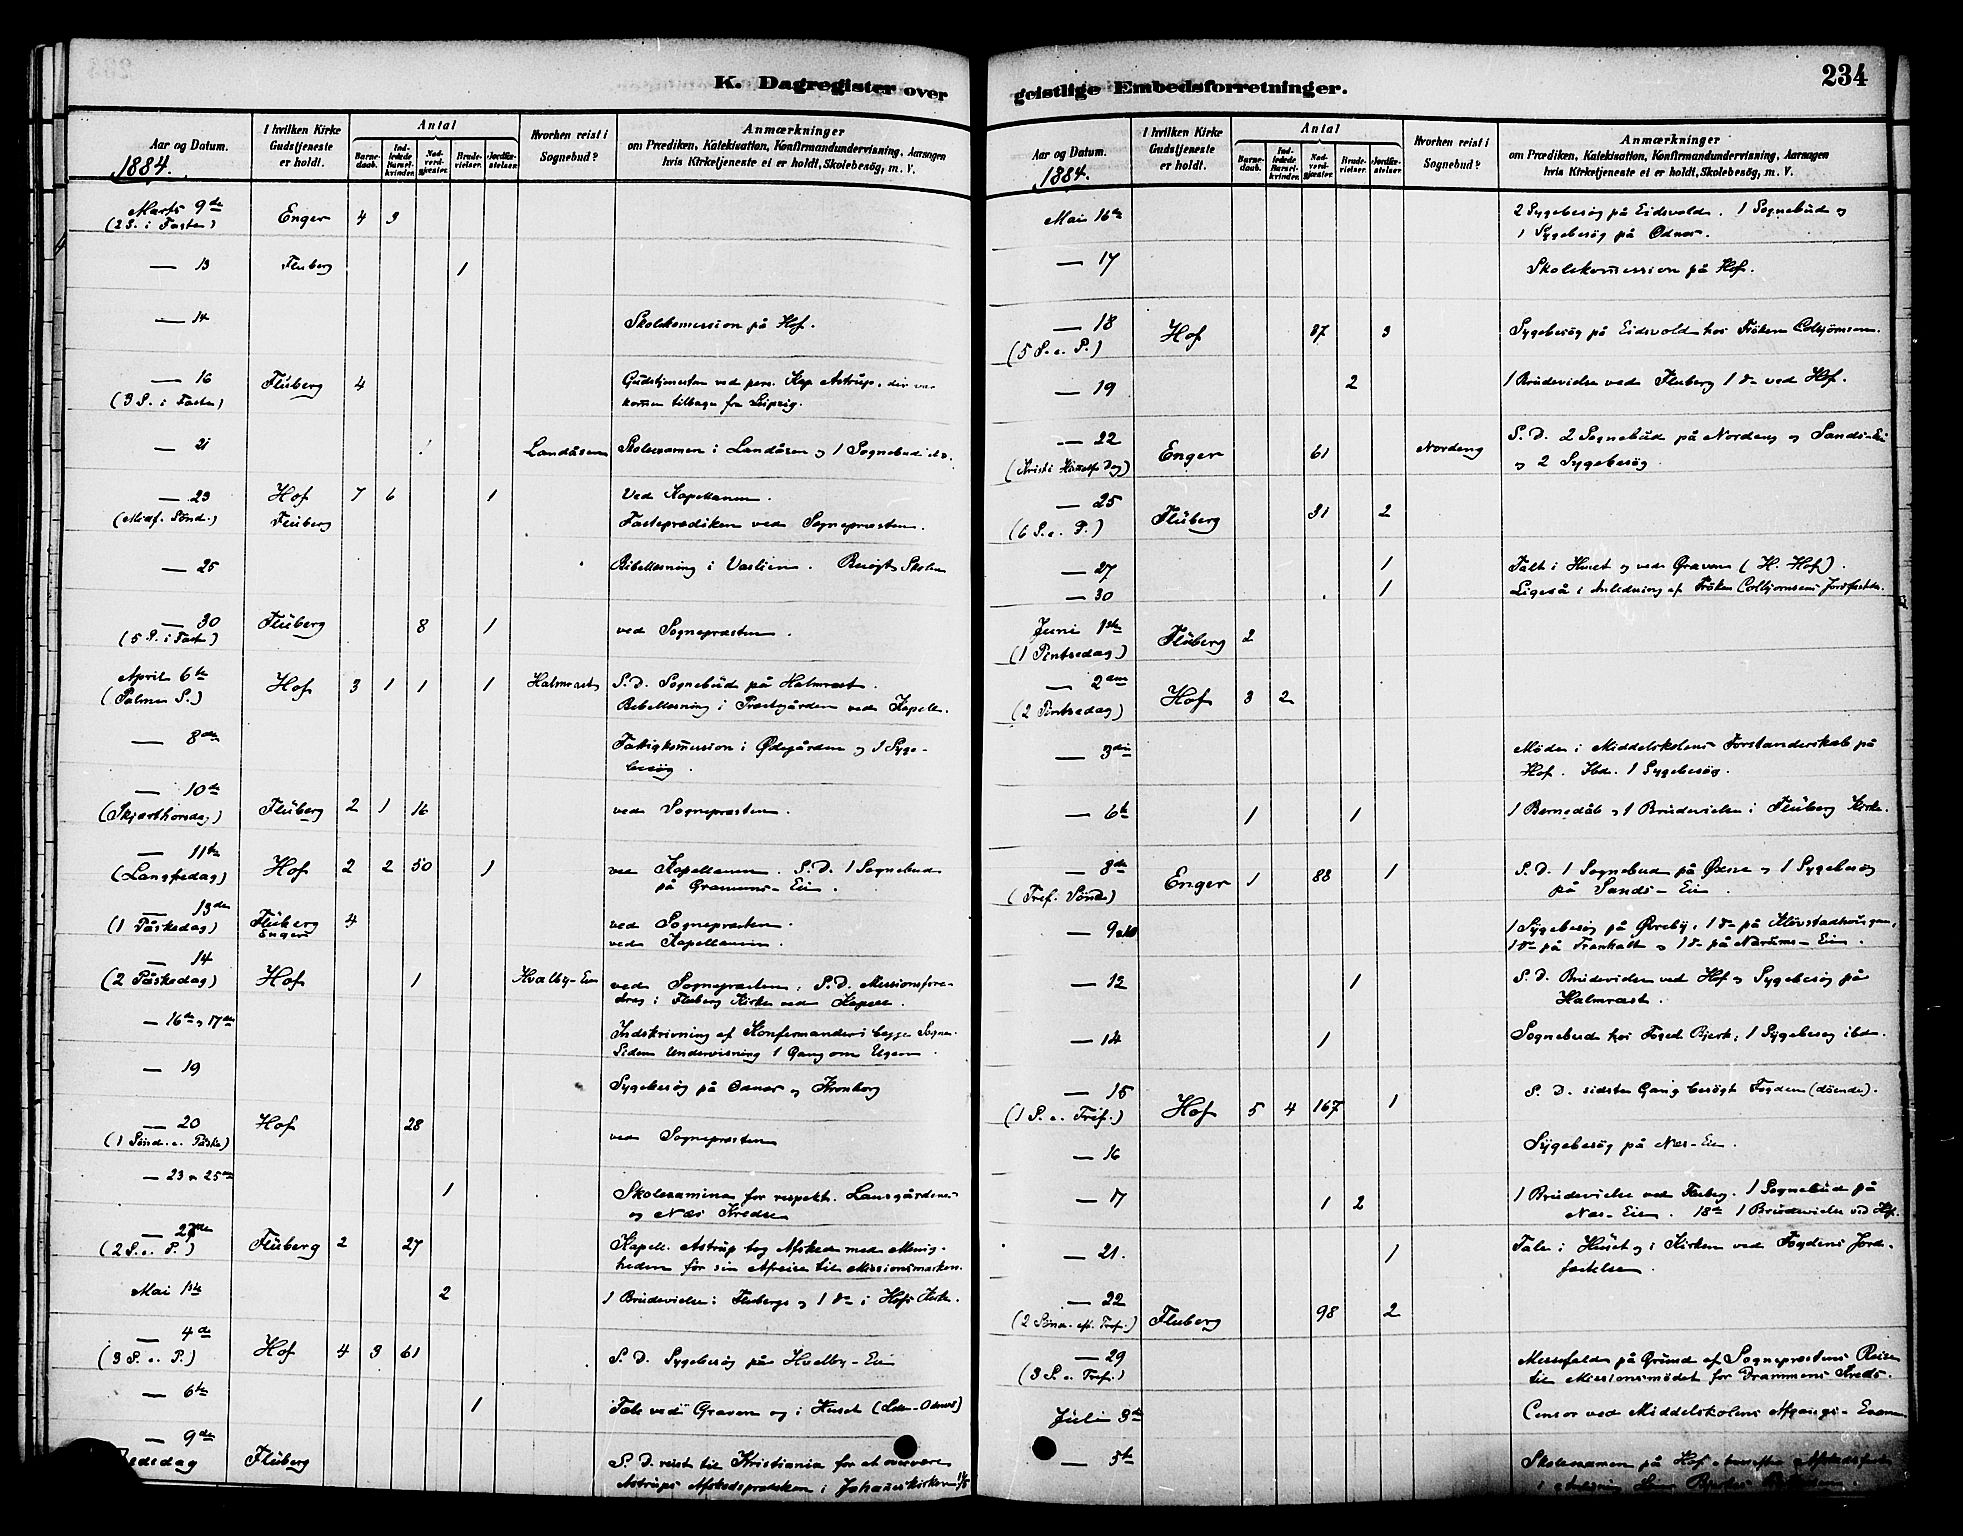 K. Dagregister over
Aar og Datum.
1884.
I hvilken Kirke Gudstjeneste er holdt.
Antal
Barnedaab.
Indledede Barselkvinder.
Nadverdgjæster.
Brudevielser.
Jordfæstelser.
Hvorhen reist i Sognebud?
Anmærkninger
om Prædiken, Katekisation, Konfirmandundervisning, Aarsagen
hvis Kirketjeneste ei er holdt, Skolebesøg, m. V.
Marts 9de Enger 4 3
(2 S. i Fasten)
— 13 Fluberg 1
— 14 Skolekomission på Hof.
— 16 Flüberg 4 Gudstjenesten ved pers. Kap Astrup, der var
(3 S. i Fasten) kommen tilbage fra Leipzig.
— 21 Landåsen Skolexamen i Landåsen og 1 Sognebud
— 23 Hof 7 6 1 Ved Kapellanen.
(Midf. Sönd.) Flüberg Fasteprædiken ved Sognepræsten.
— 25 Bibellæsning i Vaslien. Besögt Skolen
— 30 Flüberg 8 1 ved Sognepræsten.
(5 S. i Fasten)
April 6te Hof 3 1 1 1 Halmrast S. D. Sognebüd på Halmrast.
(Palme S.) Bibellæsning i Præstgården ved Kapell.
— 8de Fattigkomission i Ødegården og 1 Syge-
besøg.
— 10de
(Skjærthorsdag) Flüberg 2 1 16 ved Sognepræsten.
— 11te
(Langfredag) Hof 2 2 50 1 ved Kapellanen. S. D. 1 Sognebud
på Grammens-Eie.
— 13de
(1 Påskedag) Flüberg 4 ved Sognepræsten.
Enger ved Kapellanen.
— 14
(2 Påskedag) Hof 1 Hvalby-Eie ved Sognepræsten. S. D. Missionsfore-
drag i Fluberg Kirke ved Kapell.
— 16de og 17de Indskrivning af Konfirmander i begge Sogne.
Siden Undervisning 1 Gang om Ugen.
— 19 Sygebesög på Odnes og Kronborg
— 20 Hof 28 ved Sognepræsten
(1 Sönd. e. Påske)
— 23 og 25de 1 Skolexamina for respekt. Landgårdenes
og Næs Kredse
— 27de
(2 S. e. P.) Flüberg 2 27 Kapell. Astrup tog Afsked med Menig-
heden för sin Afreise til Missionsmarken.
Mai 1ste 2 1 Brüdevielse i Flubergs og 1 do i Hofs Kirke.
— 4de
(3 S. e. P.) Hof 4 3 61 S. D. Sygebesög på Hvalby-Eie
— 6te 1 Tale ved Graven og i Huset
— 9de
Bededag Flüberg S. D. reist til Kristiania for at overvære
Astrups Afskedsprædiken i Johanneskirken
geistlige Embedsforretninger.
234
Aar og Datum.
1884.
I hvilken Kirke Gudstjeneste er holdt.
Antal
Barnedaab.
Indledede Barselkvinder.
Nadverdgjæster.
Brudevielser.
Jordfæstelser.
Hvorhen reist i Sognebud?
Anmærkninger
om Prædiken, Katekisation, Konfirmandundervisning, Aarsagen
hvis Kirketjeneste ei er holdt, Skolebesøg, m. V.
Mai 16de 2 Sygebesög på Eidsvold. 1 Sognebüd og
1 Sygebesög på Odnes.
— 17 Skolekomission på Hof.
— 18 Hof 37 3 Sygebesög på Eidsvold hos Fröken Colbjørnsen.
(5 S. e. P.)
— 19 2 1 Brüdevielse ved Fluberg 1 do ved Hof.
— 22 Enger 61 Nordeng S. D. 2 Sognebüd på Nordeng og Sands-Eie
(Kristi Himmelf. Dag) og 2 Sygebesög.
— 25 Flüberg 31 2
(6 S. e. P.)
— 27 1 Talt i Huset og ved Graven (H. Hof).
— 30 1 Ligeså i Anledning af Fröken Colbjørnsens Jordfæstelse.
Juni 1ste Flüberg 2
(1 Pintsedag)
— 2den Hof 3 2
(2 Pintsedag)
— 3die Møde i Middelskolens Forstanderskab på
Hof. Ibd. 1 Sygebesög.
— 6te 1 1 1 Barnedåb og 1 Brüdevielse i Flüberg Kirke.
— 8de Enger 1 88 1 S. D. 1 Sognebud på Øxne og 1 Sygebesög
(Tref. Sönd.) på Sands-Eie.
— 9de 1 Sygebesög på Øvreby, 1 do på Klövstadhaugen,
1 do på og 1 do på Narums-Eie.
— 12 1 S. D. Brüdevielse ved Hof og Sygebesög på
Halmrast.
— 14 1 Sognebud hos Foged Bjerk; 1 Sygebesög ibd.
— 15 Hof 5 4 167 1 S. D. sidste Gang besögt Fogden (döende).
(1 S. e. Tref.)
— 16 Sygebesög på Næs-Eie.
— 17 1 2 1 Brudevielse ved Fluberg. 1 Sognebüd på
Næs-Eie. 18de 1 Brudevielse ved Hof.
— 21. 1 Tale i Huset og i Kirken ved Fogdens Jord-
fæstelse.
— 22 Fluberg 98 2
(2 Sönd. eft. Tref.)
— 29 Messefald på Grund af Sognepræstens Reise
(3 S. e. Tref.) til Missionsmödet for Drammens Kreds.
Juli 3de Censor ved Middelskolens Afgangs-Examen
— 5te Skolexamen på Hof